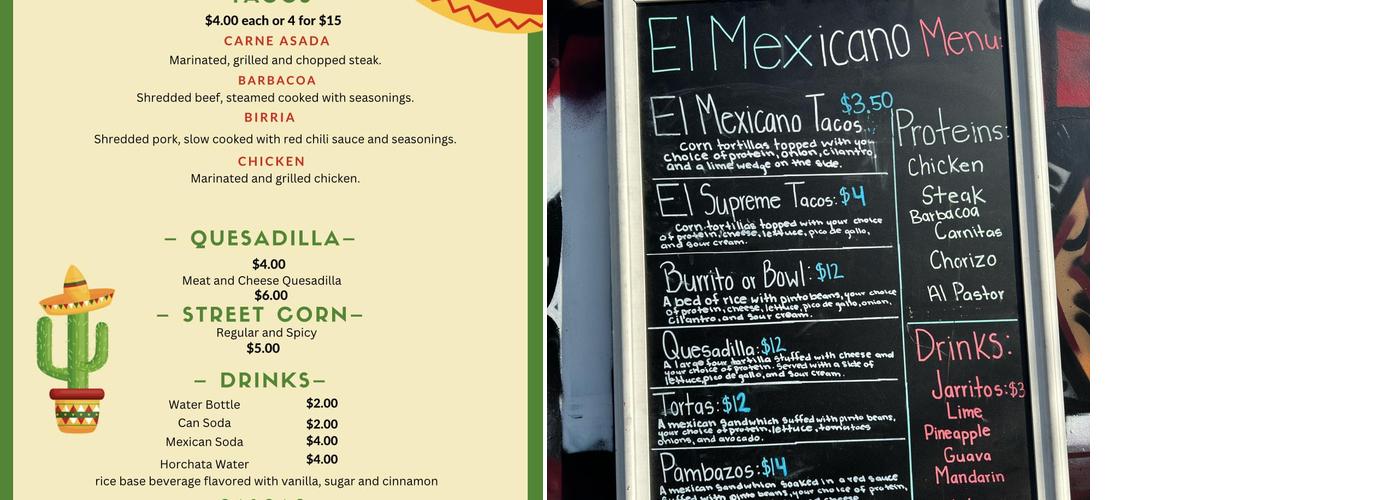 TACOS
$4.00 each or 4 for $15
CARNE ASADA
Marinated, grilled and chopped steak.
BARBACOA
Shredded beef, steamed cooked with seasonings.
BIRRIA
Shredded pork, slow cooked with red chili sauce and seasonings.
CHICKEN
Marinated and grilled chicken.
– QUESADILLA–
$4.00
Meat and Cheese Quesadilla
$6.00
– STREET CORN–
Regular and Spicy
$5.00
– DRINKS–
Water Bottle $2.00
Can Soda $2.00
Mexican Soda $4.00
Horchata Water $4.00
rice base beverage flavored with vanilla, sugar and cinnamon
El Mexicano Menu:
El Mexicano Tacos: $3.50
corn tortillas topped with your
choice of protein, onion, cilantro,
and a lime wedge on the side.
El Supreme Tacos: $4
corn tortillas topped with your choice
of protein, cheese, lettuce, pico de gallo,
and sour cream.
Burrito or Bowl: $12
A bed of rice with pinto beans, your choice
of protein, cheese, lettuce, pico de gallo, onion,
cilantro, and sour cream.
Quesadilla: $12
A large flour tortilla stuffed with cheese and
your choice of protein. Served with a side of
lettuce, pico de gallo, and sour cream.
Tortas: $12
A mexican sandwhich suffed with pinto beans,
your choice of protein, lettuce, tomatoes
onions, and avocado.
Pambazos: $14
A mexican sandwhich soaked in a red sauce
suffed with pinto beans, your choice of protein,
cheese
Proteins:
Chicken
Steak
Barbacoa
Carnitas
Chorizo
Al Pastor
Drinks:
Jarritos: $3
Lime
Pineapple
Guava
Mandarin